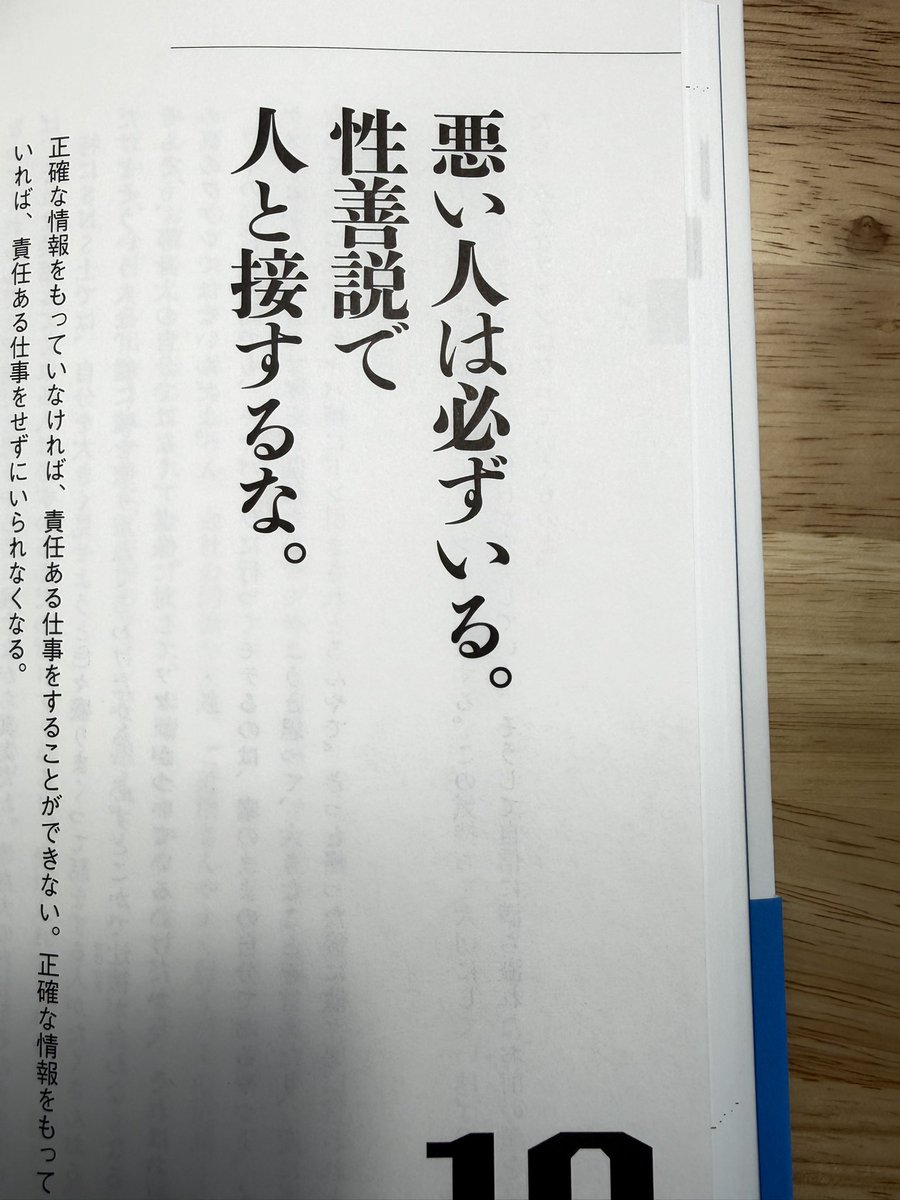 悪い人は必ずいる。
性善説で
人と接するな。
正確な情報をもっていなければ、責任ある仕事をすることができない。正確な情報をもって
いれば、責任ある仕事をせずにいられなくなる。
10